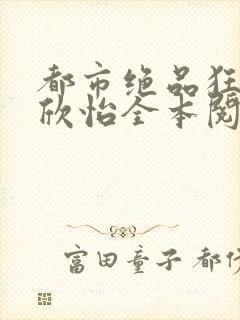 都市绝品狂
欣怡全本阅
富田童子 都